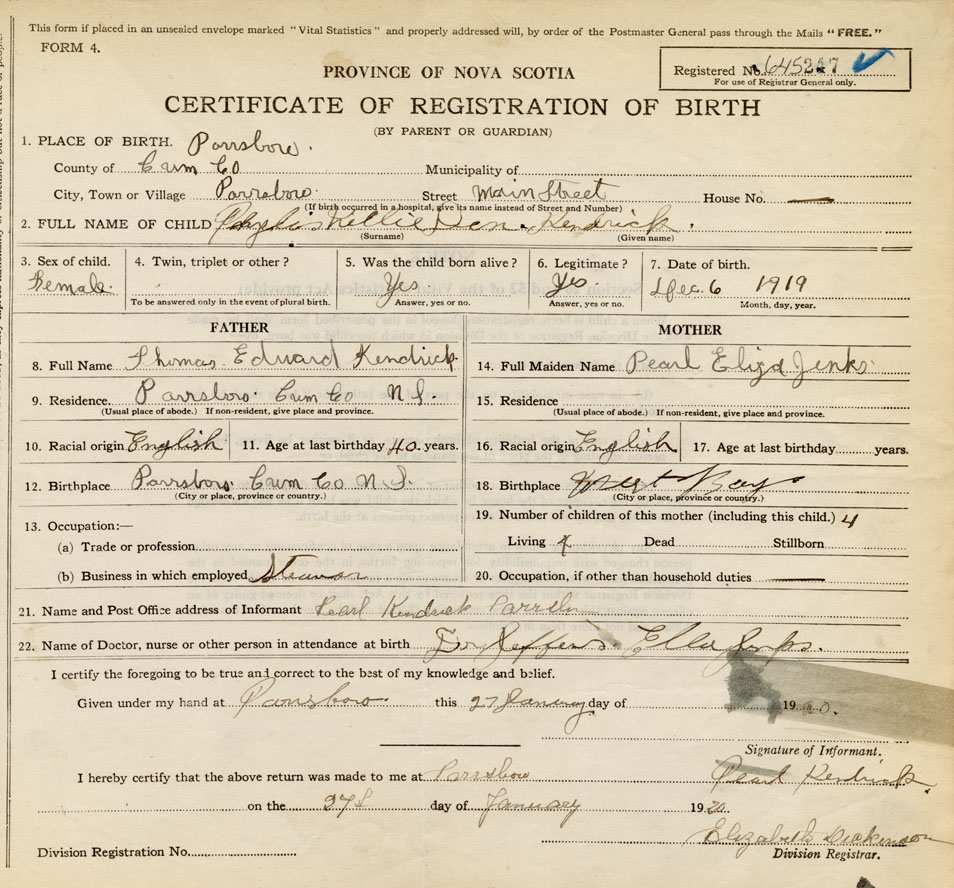 This form if placed in an unsealed envelope marked "Vital Statistics" and properly addressed will, by order of the Postmaster General pass through the Mails "FREE."
FORM 4.
Registered No. 645247
For use of Registrar General only.
PROVINCE OF NOVA SCOTIA
CERTIFICATE OF REGISTRATION OF BIRTH
(BY PARENT OR GUARDIAN)
1. PLACE OF BIRTH. Parrsboro.
County of Cum Co Municipality of
City, Town or Village Parrsboro Street Main Street House No. —
(If birth occurred in a hospital, give its name instead of Street and Number)
2. FULL NAME OF CHILD Kendrick
(Surname) (Given name)
3. Sex of child. 4. Twin, triplet or other? 5. Was the child born alive? 6. Legitimate? 7. Date of birth.
Female Yes Yes Dec. 6 1919
To be answered only in the event of plural birth. Answer, yes or no. Answer, yes or no. Month, day, year.
FATHER MOTHER
8. Full Name Thomas Edward Kendrick 14. Full Maiden Name Pearl Eliza Jenks
9. Residence. Parrsboro Cum Co N S. 15. Residence
(Usual place of abode.) If non-resident, give place and province. (Usual place of abode.) If non-resident, give place and province.
10. Racial origin English 11. Age at last birthday 40 years. 16. Racial origin English 17. Age at last birthday years.
12. Birthplace Parrsboro Cum Co N S. 18. Birthplace Bay
(City or place, province or country.) (City or place, province or country.)
13. Occupation:— 19. Number of children of this mother (including this child.) 4
(a) Trade or profession Living 4 Dead Stillborn
(b) Business in which employed 20. Occupation, if other than household duties —
21. Name and Post Office address of Informant Pearl Kendrick
22. Name of Doctor, nurse or other person in attendance at birth Dr Ella
I certify the foregoing to be true and correct to the best of my knowledge and belief.
Given under my hand at Parrsboro this 27 January day of 1920.
Signature of Informant.
I hereby certify that the above return was made to me at Parrsboro Pearl Kendrick
on the 27 day of January 1920
Elizabeth Dickinson
Division Registration No. Division Registrar.